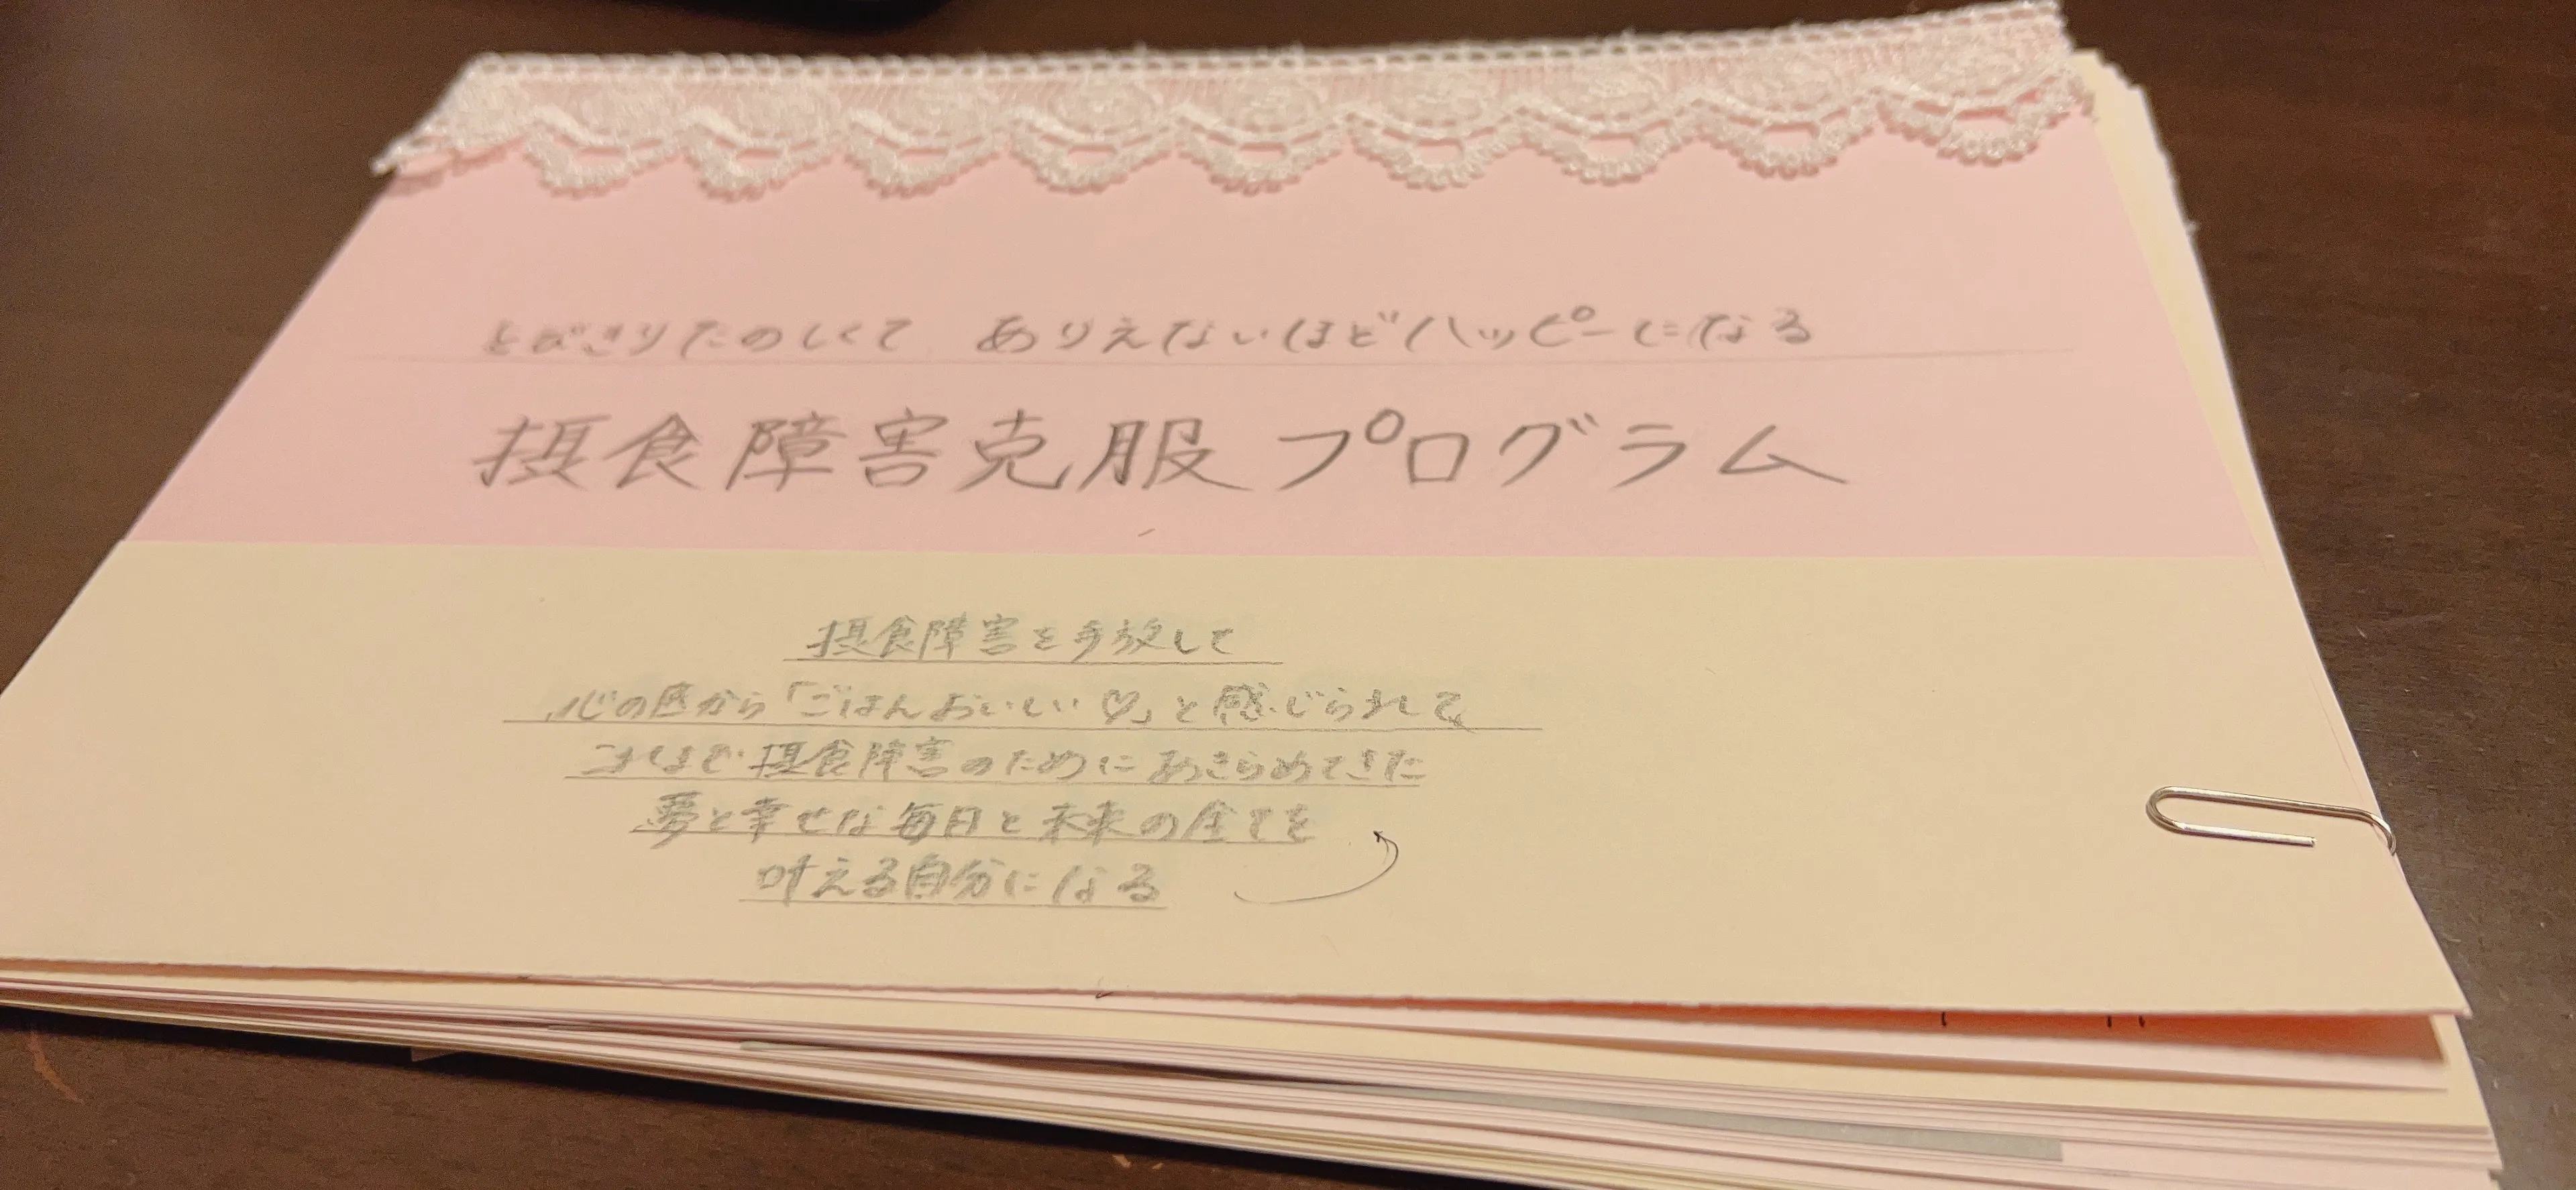 とびきりたのしくて ありえないほどハッピーになる
摂食障害克服プログラム
摂食障害を手放して
心の底から「ごはんおいしい♡」と感じられて、
これまで摂食障害のためにあきらめてきた
夢と幸せな毎日と未来の全てを
叶える自分になる